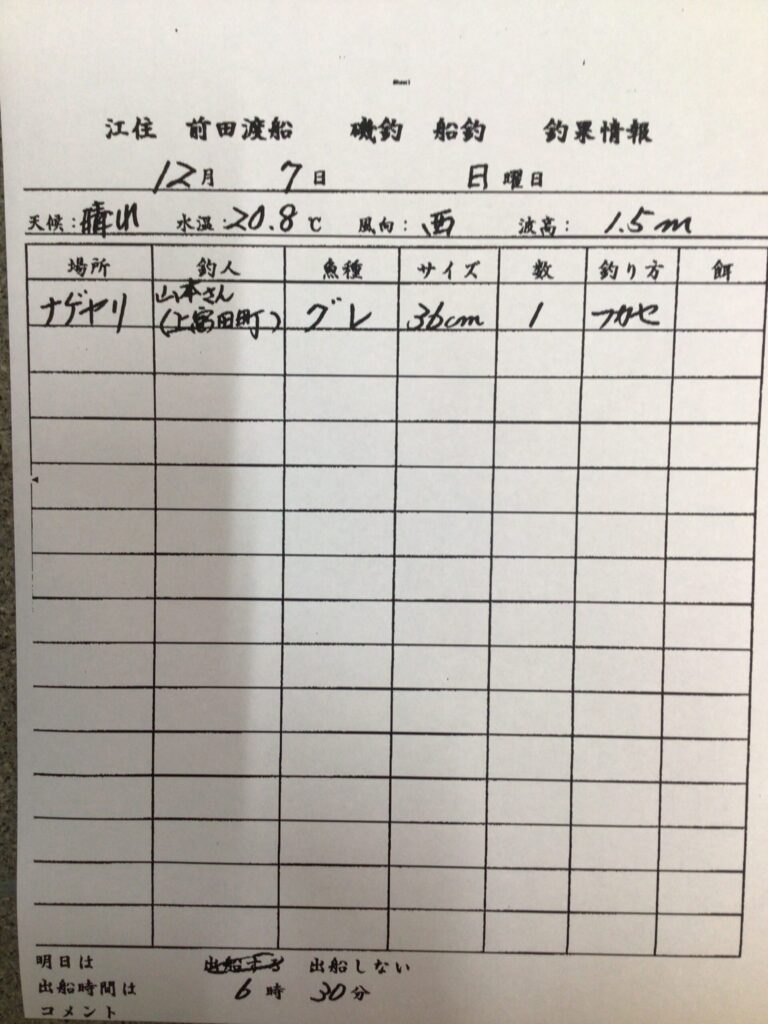 江住 前田渡船 磯釣 船釣 釣果情報
12月 7日 日曜日
天候:晴れ 水温:20.8℃ 風向:西 波高:1.5m
場所 釣人 魚種 サイズ 数 釣り方 餌
ナゲヤリ 山本さん(上富田町) グレ 36cm 1 フカセ
明日は 出船する 出船しない
出船時間は 6時 30分
コメント